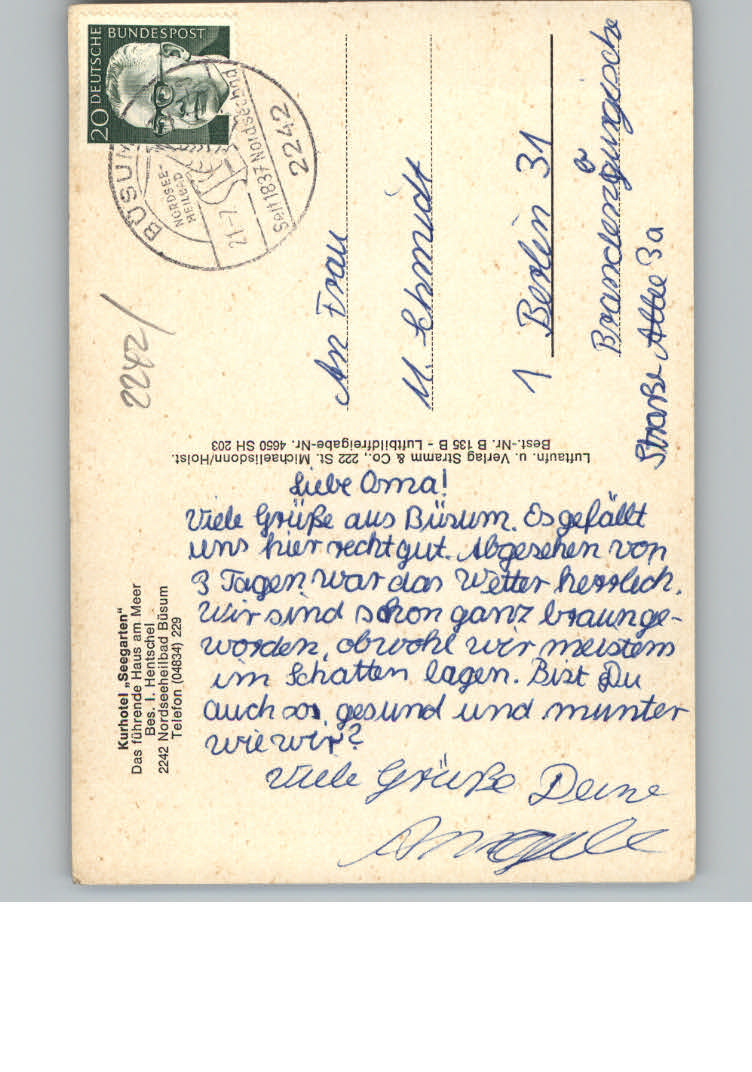 Kurhotel „Seegarten"
Das führende Haus am Meer
Bes. I. Hentschel
2242 Nordseeheilbad Büsum
Telefon (04834) 229
Liebe Oma!
Viele Grüße aus Büsum. Es gefällt
uns hier recht gut. Abgesehen von
3 Tagen war das Wetter herrlich.
Wir sind schon ganz braun ge-
worden, obwohl wir meistens
im Schatten lagen. Bist Du
auch so gesund und munter
wie wir?
Viele Grüße Deine
Luftaufn. u. Verlag Stramm & Co., 222 St. Michaelisdonn/Holst.
Best.-Nr. B 135 B - Luftbildfreigabe-Nr. 4650 SH 203
2242/
20 DEUTSCHE BUNDESPOST
BÜSUM
NORDSEE-
HEILBAD
21-7
Seit 1837 Nordseebad
2242
An Frau
M. Schmidt
1 Berlin 31
Brandenburgische
Straße 3a